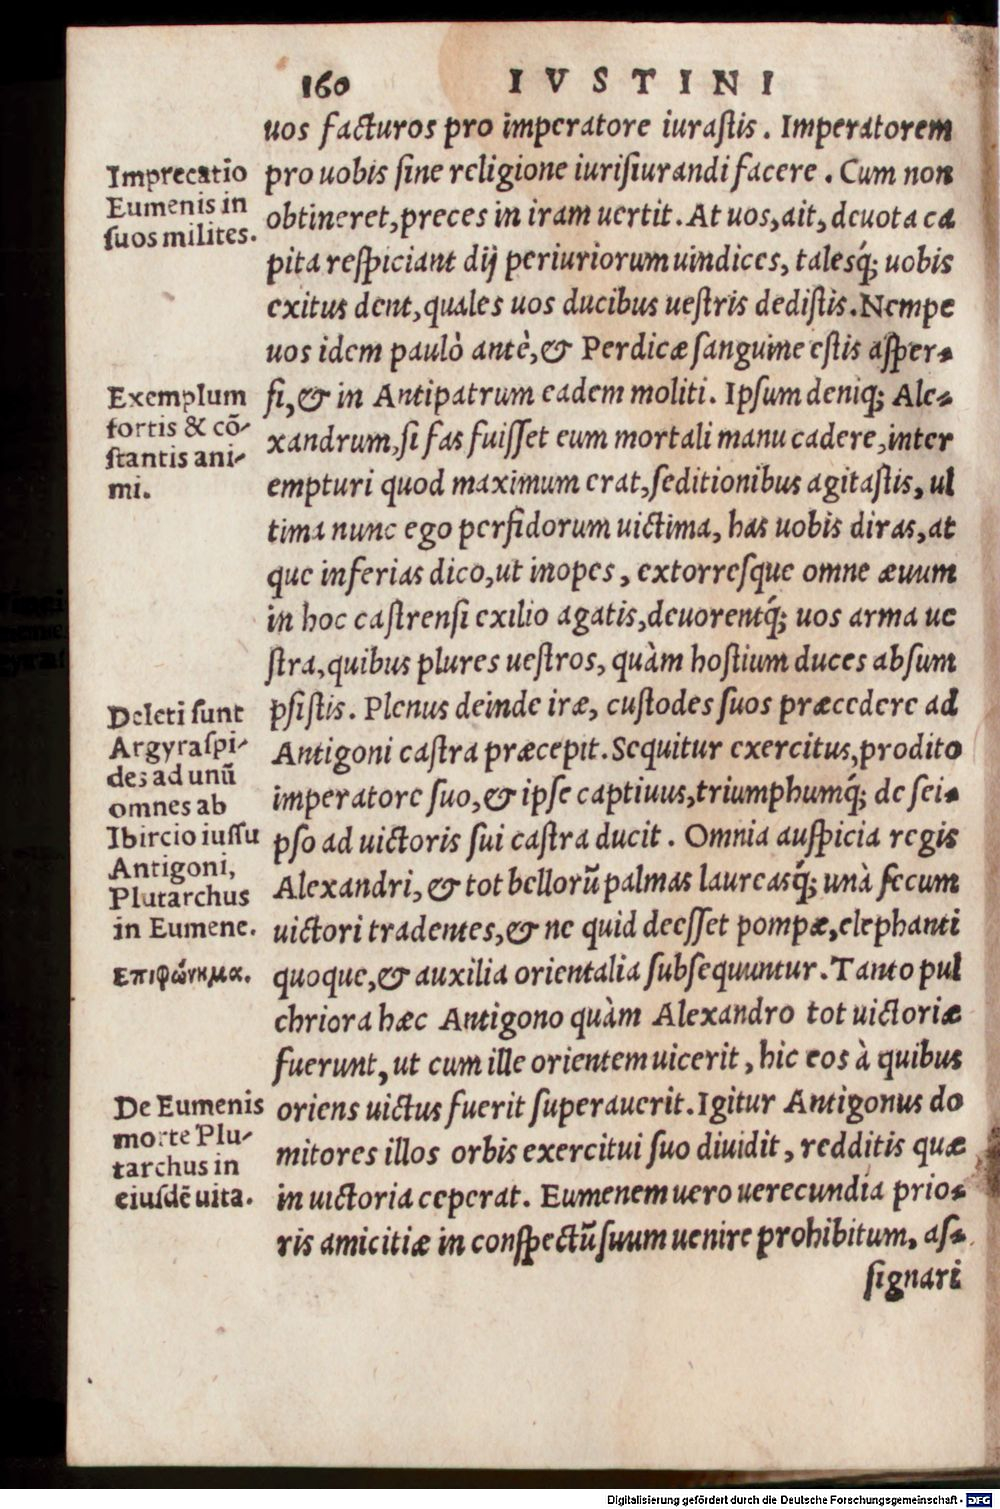 160 IVSTINI
uos facturos pro imperatore iurastis. Imperatorem
pro uobis sine religione iurisiurandi facere. Cum non
obtineret, preces in iram uertit. At uos, ait, deuota ca
pita respiciant dij periuriorum uindices, talesq́; uobis
exitus dent, quales uos ducibus uestris dedistis. Nempe
uos idem paulò antè, & Perdicæ sanguine estis asper-
si, & in Antipatrum eadem moliti. Ipsum deniq; Ale-
xandrum, si fas fuisset eum mortali manu cadere, inter
empturi quod maximum erat, seditionibus agitastis, ul
tima nunc ego perfidorum uictima, has uobis diras, at
que inferias dico, ut inopes, extorresque omne æuum
in hoc castrensi exilio agatis, deuorentq́; uos arma ue
stra, quibus plures uestros, quàm hostium duces absum
psistis. Plenus deinde iræ, custodes suos præcedere ad
Antigoni castra præcepit. Sequitur exercitus, prodito
imperatore suo, & ipse captiuus, triumphumq́; de sei-
pso ad uictoris sui castra ducit. Omnia auspicia regis
Alexandri, & tot bellorũ palmas laureasq́; unà secum
uictori tradentes, & ne quid deesset pompæ, elephanti
quoque, & auxilia orientalia subsequuntur. Tanto pul
chriora hæc Antigono quàm Alexandro tot uictoriæ
fuerunt, ut cum ille orientem uicerit, hic eos à quibus
oriens uictus fuerit superauerit. Igitur Antigonus do
mitores illos orbis exercitui suo diuidit, redditis quæ
in uictoria ceperat. Eumenem uero uerecundia prio-
ris amicitiæ in conspectũ suum uenire prohibitum, as-
signari
Imprecatiõ
Eumenis in
suos milites.
Exemplum
fortis & cõ-
stantis ani-
mi.
Deleti sunt
Argyraspi-
des ad unũ
omnes ab
Ibircio iussu
Antigoni,
Plutarchus
in Eumene.
Επιφώνημα.
De Eumenis
morte Plu-
tarchus in
eiusdẽ uita.
Digitalisierung gefördert durch die Deutsche Forschungsgemeinschaft - DFG